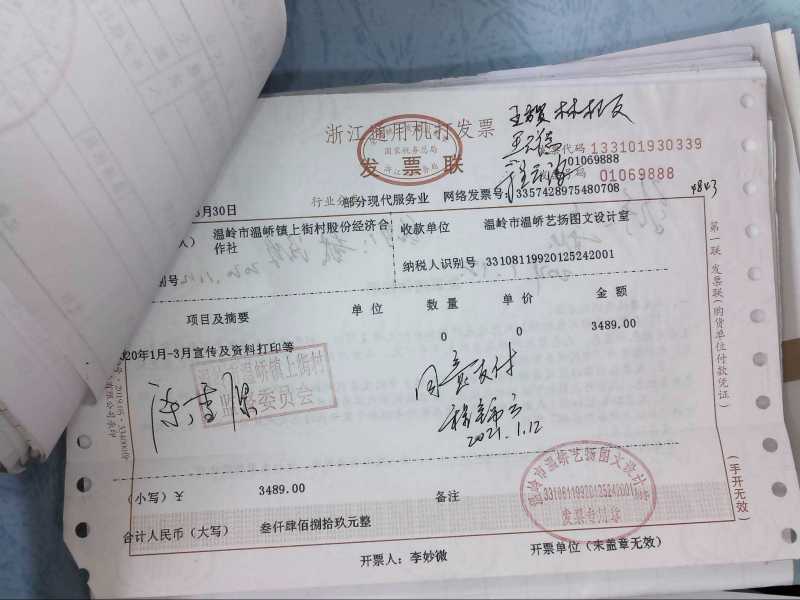 浙江通用机打发票
国家税务总局
发票联
代码 133101930339
01069888
号码 01069888
4843
月30日
行业分类 部分现代服务业 网络发票号: 3357428975480708
温岭市温峤镇上街村股份经济合作社
收款单位 温岭市温峤艺扬图文设计室
纳税人识别号 33108119920125242001
别号
项目及摘要 单位 数量 单价 金额
020年1月-3月宣传及资料打印等 0 0 3489.00
温峤镇上街村
监委委员会
同意支付
2021.1.12
(小写)¥ 3489.00 备注
合计人民币(大写) 叁仟肆佰捌拾玖元整
温岭市温峤艺扬图文设计室
33108119920125242001
发票专用章
开票人: 李妙微 开票单位(未盖章无效)
第一联 发票联(购货单位付款凭证)
(手开无效)